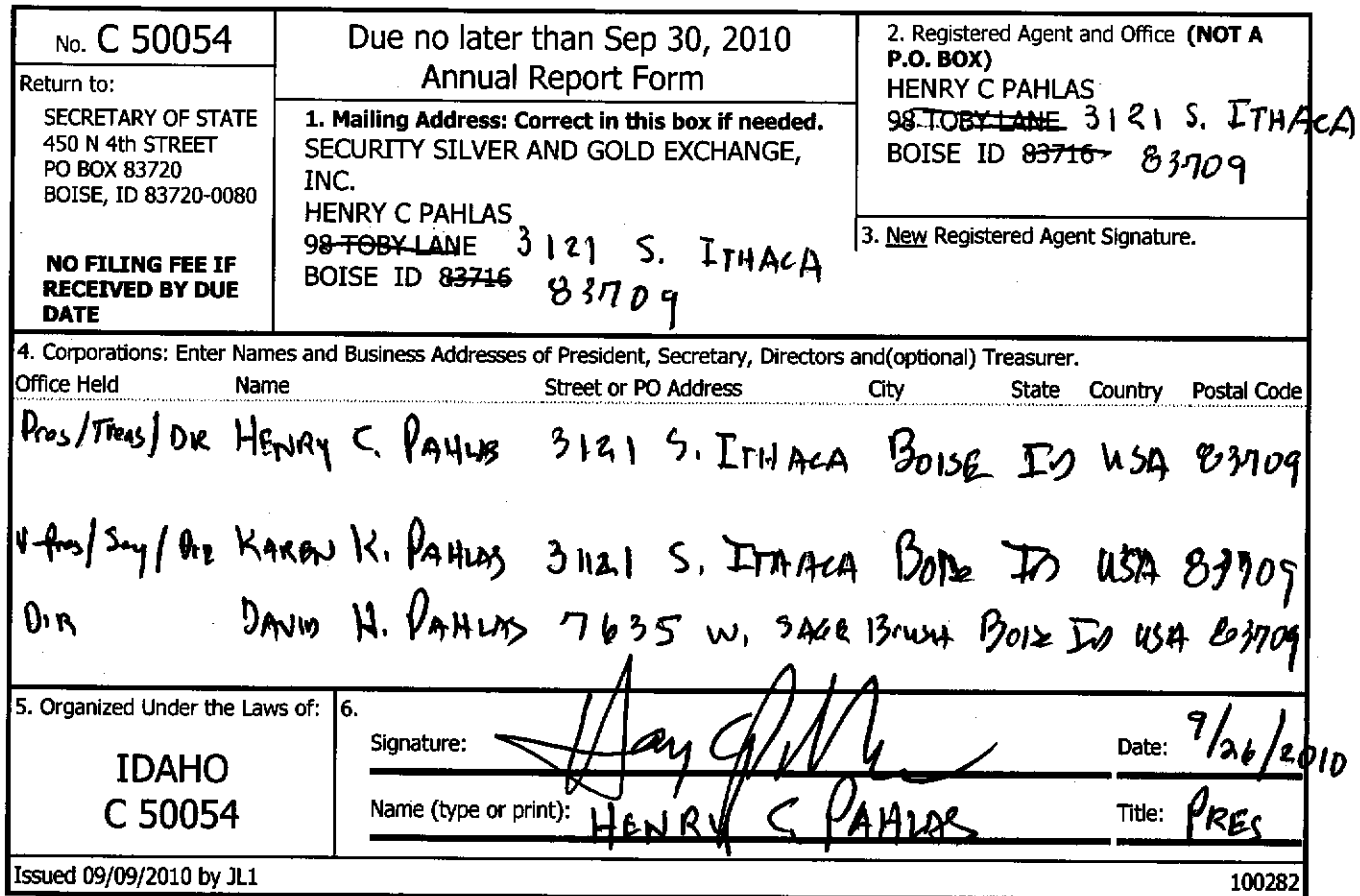 No. C 50054
Return to:
SECRETARY OF STATE
450 N 4th STREET
PO BOX 83720
BOISE, ID 83720-0080
NO FILING FEE IF
RECEIVED BY DUE
DATE
Due no later than Sep 30, 2010
Annual Report Form
1. Mailing Address: Correct in this box if needed.
SECURITY SILVER AND GOLD EXCHANGE,
INC.
HENRY C PAHLAS
98 TOBY LANE 3121 S. ITHACA
BOISE ID 83716 83709
2. Registered Agent and Office (NOT A
P.O. BOX)
HENRY C PAHLAS
98 TOBY LANE 3121 S. ITHACA
BOISE ID 83716 83709
3. New Registered Agent Signature.
4. Corporations: Enter Names and Business Addresses of President, Secretary, Directors and(optional) Treasurer.
Office Held Name Street or PO Address City State Country Postal Code
Pres/Treas/DIR HENRY C. PAHLAS 3121 S. ITHACA BOISE ID USA 83709
V-Pres/Secy/Dir KAREN K. PAHLAS 3121 S. ITHACA Boise ID USA 83709
DIR DAVID H. PAHLAS 7635 W. SAGE Brush Boise ID USA 83709
5. Organized Under the Laws of:
IDAHO
C 50054
6.
Signature:
Date: 9/26/2010
Name (type or print): HENRY C PAHLAS
Title: PRES
Issued 09/09/2010 by JL1
100282